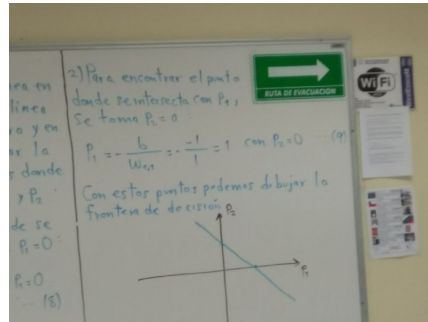 nea en
línea
ro y en
ar la
s donde
y P₂
de se
P₁=0:
P₁=0
... (8)
2) Para encontrar el punto
donde se intersecta con P₁,
se toma P₂=0:
P₁ = - b/W₁,₁ = - -1/1 = 1 con P₂=0 ... (9)
Con estos puntos podemos dibujar la
frontera de decisión
P₂
P₁
RUTA DE EVACUACION
WiFi